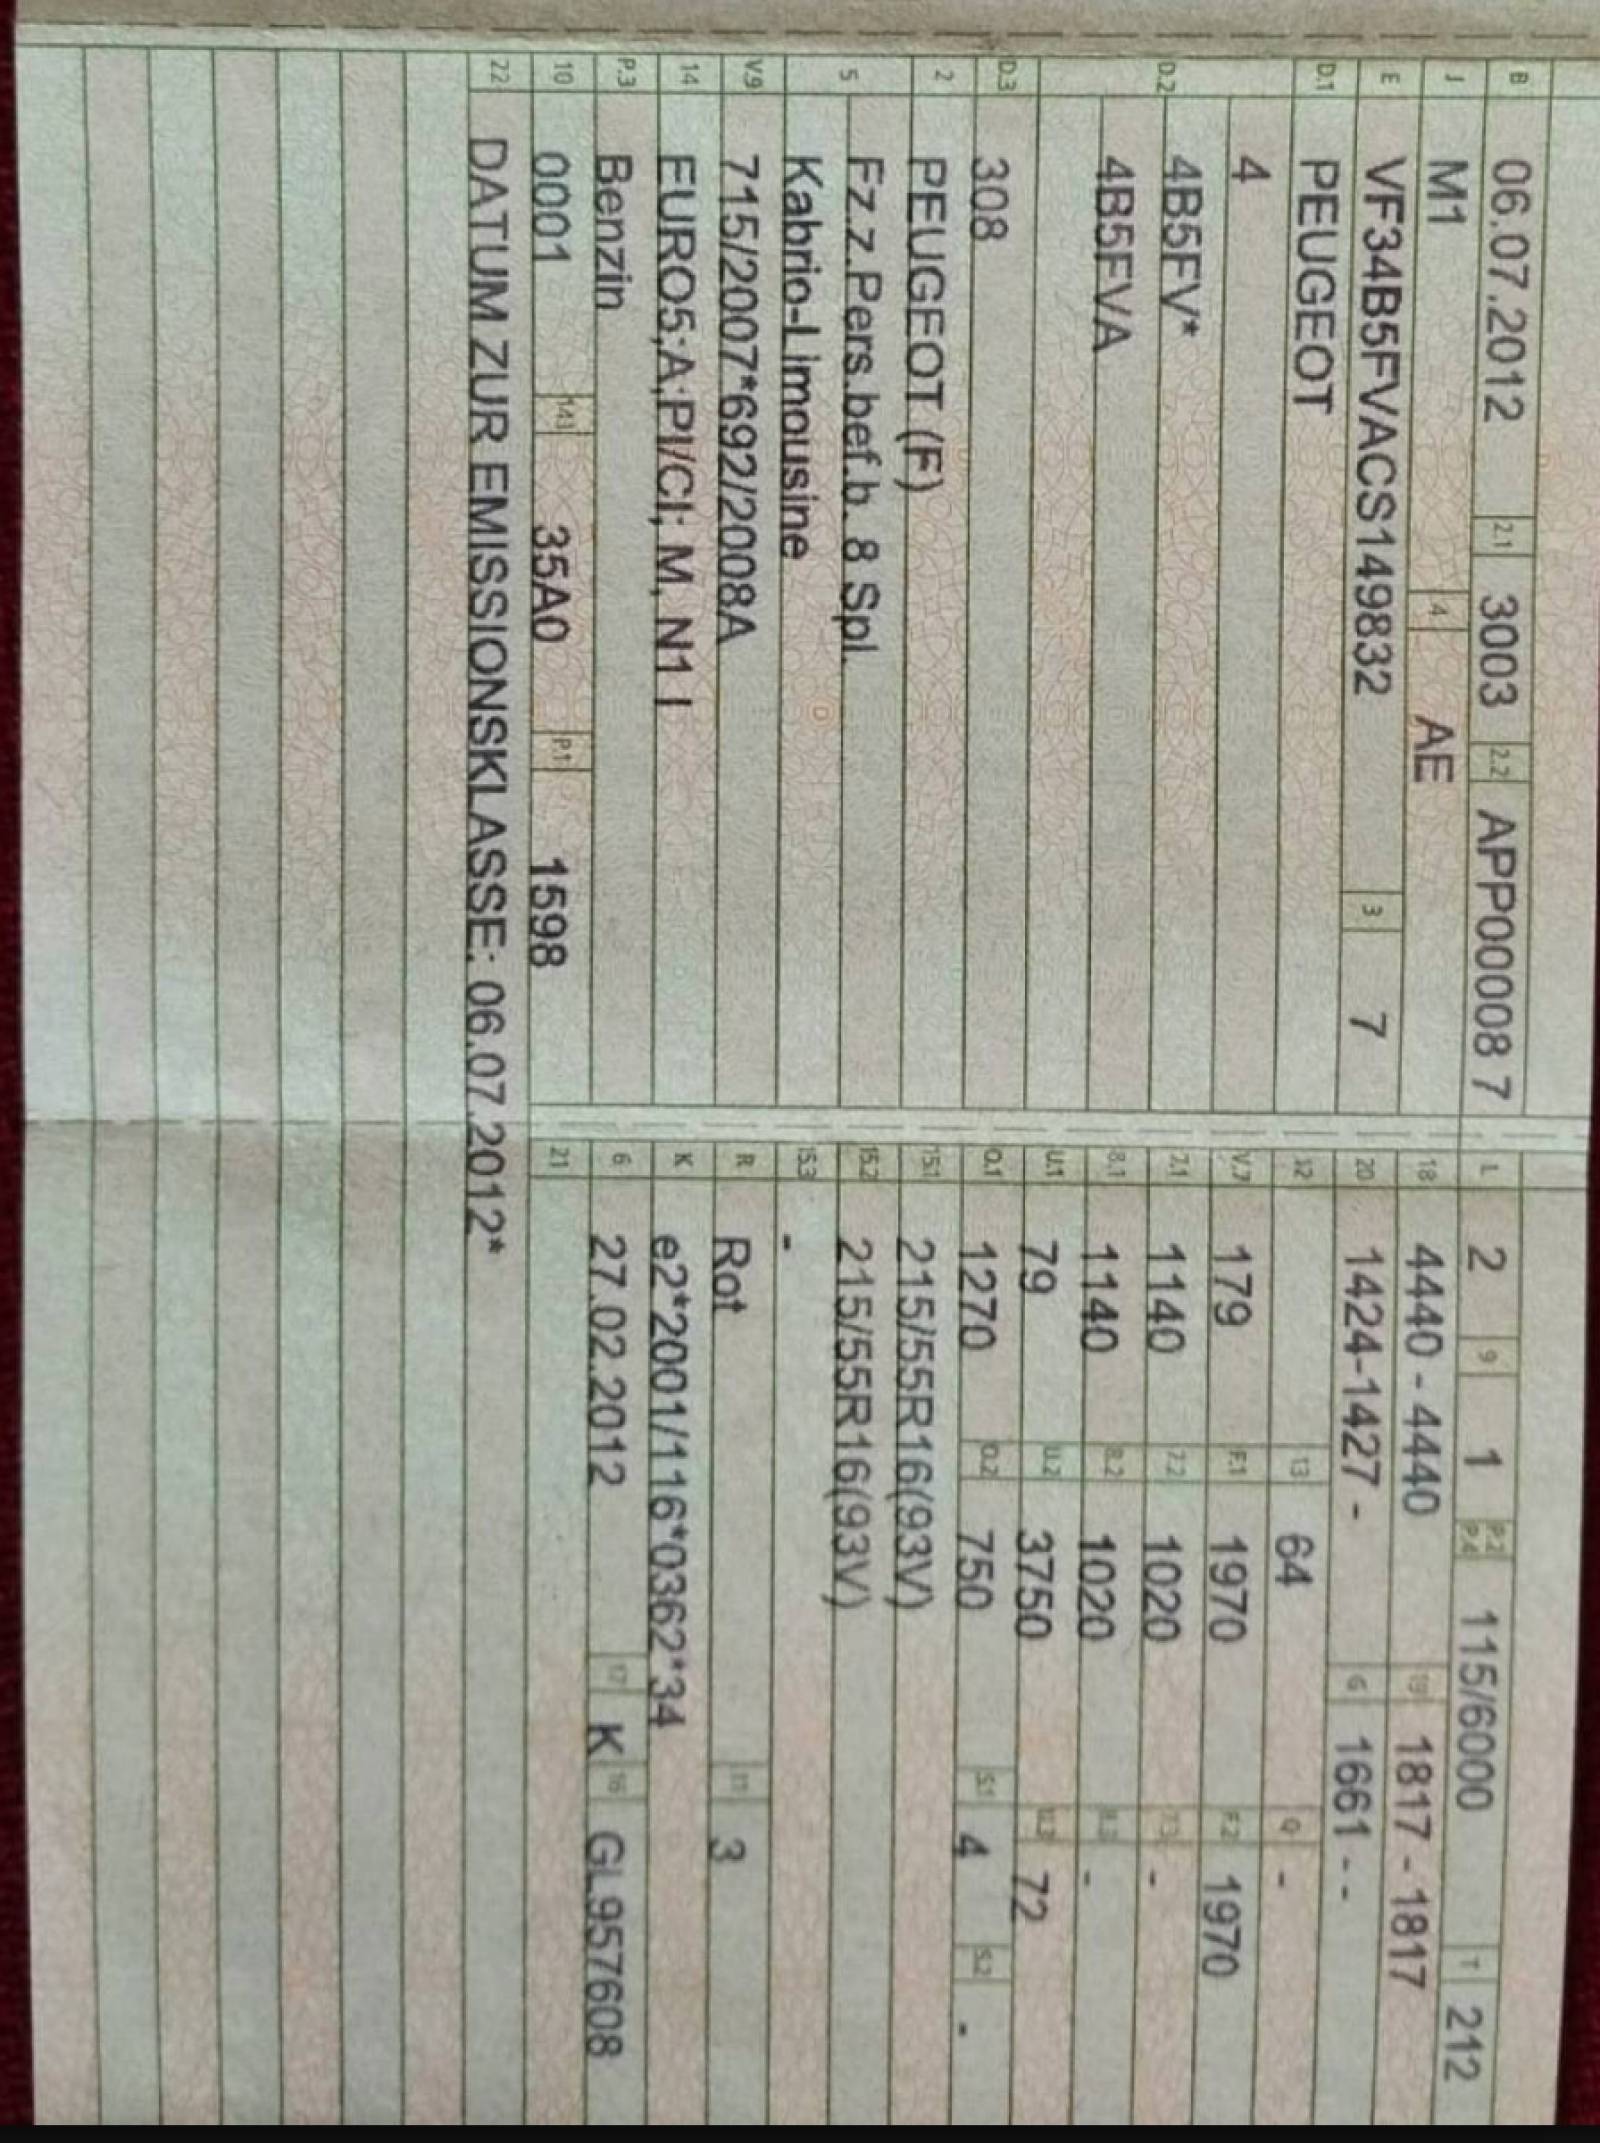 B 06.07.2012 2.1 3003 2.2 APP00008 7
J M1 4 AE
E VF34B5FVACS149832 3 7
D.1 PEUGEOT
D.2 4
4B5FV*
4B5FVA
D.3 308
2 PEUGEOT (F)
5 Fz.z.Pers.bef.b. 8 Spl.
Kabrio-Limousine
V.9 715/2007*692/2008A
14 EURO5;A;PI/CI; M, N1 I
P.3 Benzin
10 0001 14.1 35A0 P.1 1598
22 DATUM ZUR EMISSIONSKLASSE: 06.07.2012*
L 2 9 1 P.2 P.4 115/6000 T 212
18 4440 - 4440 19 1817 - 1817
20 1424-1427 - G 1661 - -
12 13 64 Q -
V.7 179 F.1 1970 F.2 1970
7.1 1140 7.2 1020 7.3 -
8.1 1140 8.2 1020 8.3 -
U.1 79 U.2 3750 U.3 72
O.1 1270 O.2 750 S.1 4 S.2 -
15.1 215/55R16(93V)
15.2 215/55R16(93V)
15.3 -
R Rot 11 3
K e2*2001/116*0362*34
6 27.02.2012 17 K 16 GL957608
21